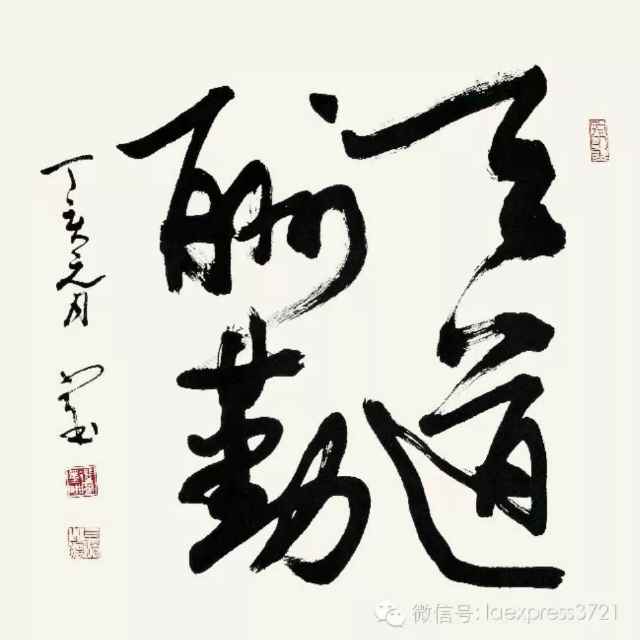 天道
酬勤
丁亥元月
微信号: laexpress3721